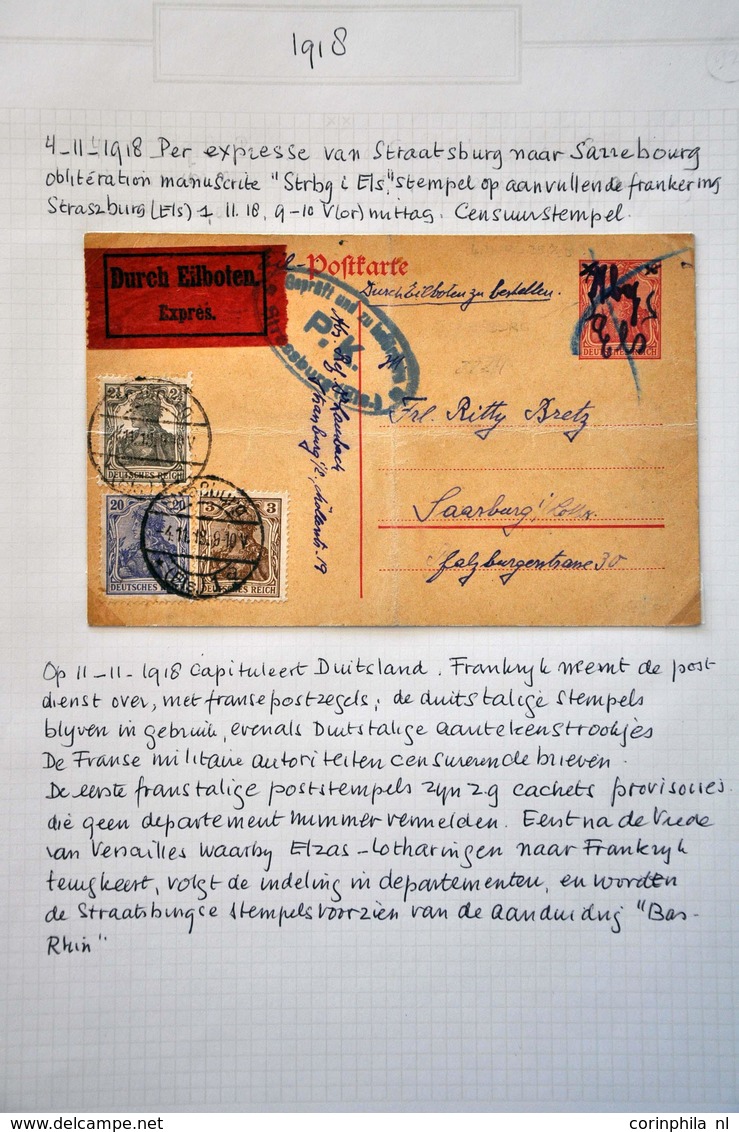 1918
4-11-1918 Per expresse van Straatsburg naar Sarrebourg
oblitération manuscrite "Strbg i Els", stempel op aanvullende frankering
Straszburg (Els) 1 11.18, 9-10 V(or)mittag. Censuurstempel.
Durch Eilboten.
Expres.
Postkarte
Durch Eilboten zu bestellen.
Geprüft und zu befördern
P.K.
Strbg
Els
DEUTSCHES REICH
2½ 2½
DEUTSCHES REICH
4.11.18. 9-10 V
20 20
DEUTSCHES REICH
3 3
DEUTSCHES REICH
4.11.18. 9-10 V
Frl Ritty Bretz
Saarburg i/ Lothr.
Pfalzburgerstrasse 30
Op 11-11-1918 Capituleert Duitsland. Frankryk neemt de post-
dienst over, met franse postzegels; de duitstalige stempels
blyven in gebruik, evenals Duitstalige aantekenstrookjes
De Franse militaire autoriteiten censureren de brieven.
De eerste franstalige poststempels zyn zg cachets provisoires.
die geen departement nummer vermelden. Eerst na de Vrede
van Versailles waarby Elzas-Lotharingen naar Frankryk
terugkeert, volgt de indeling in departementen, en worden
de Straatsburgse stempels voorzien van de aanduiding "Bas-
Rhin"
corinphila nl